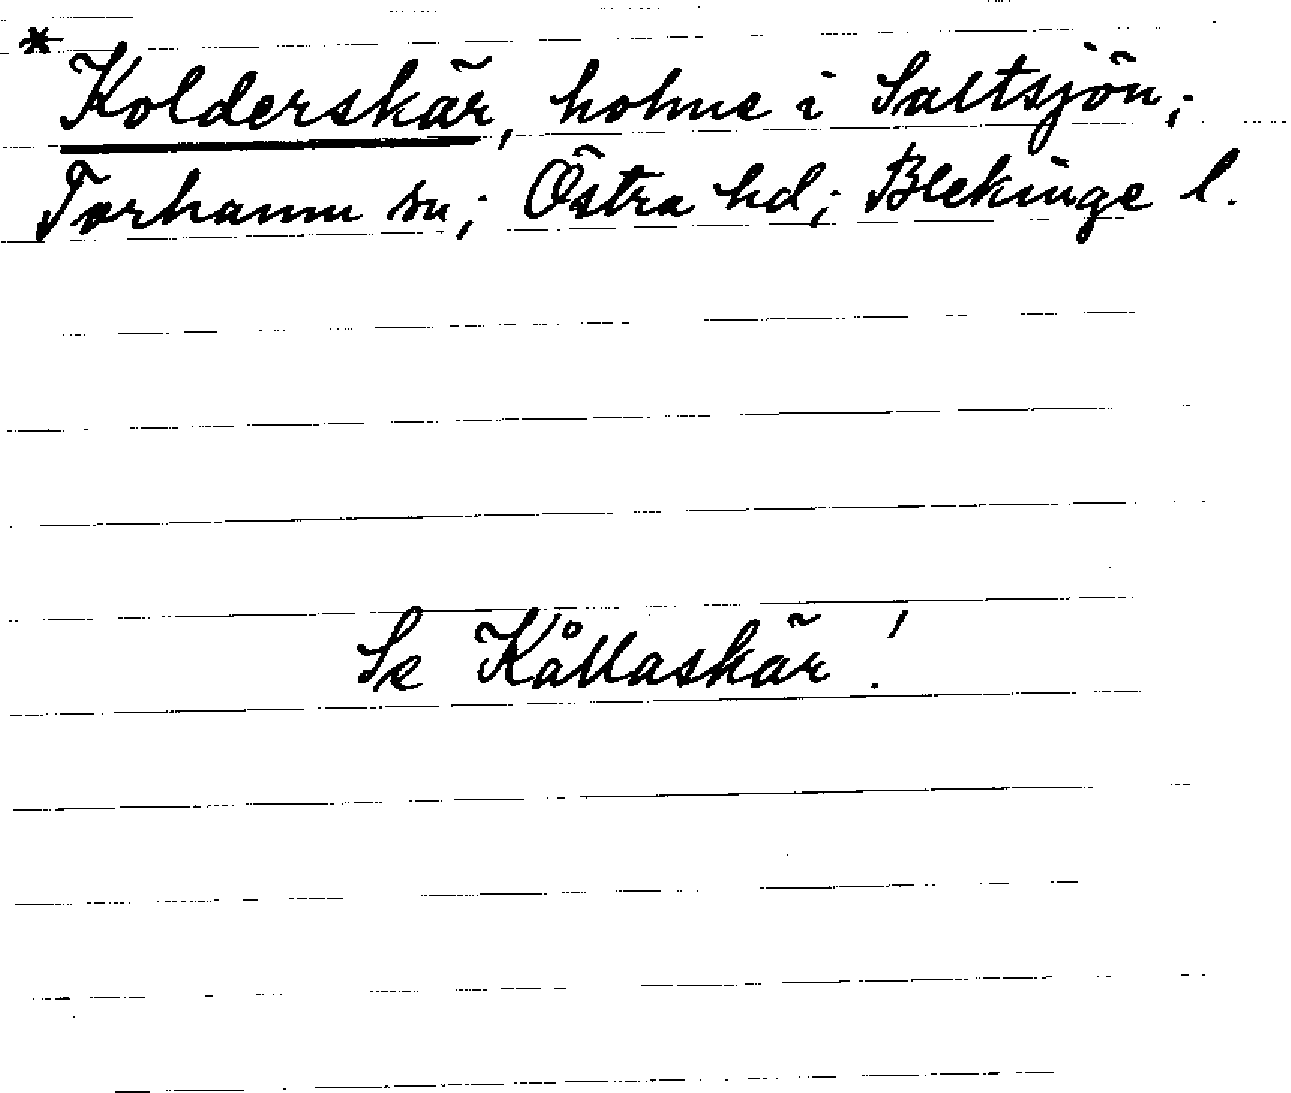 * Kolderskär, holme i Saltsjön;
Torhamn sn; Östra hd; Blekinge l.
Se Kållaskär!